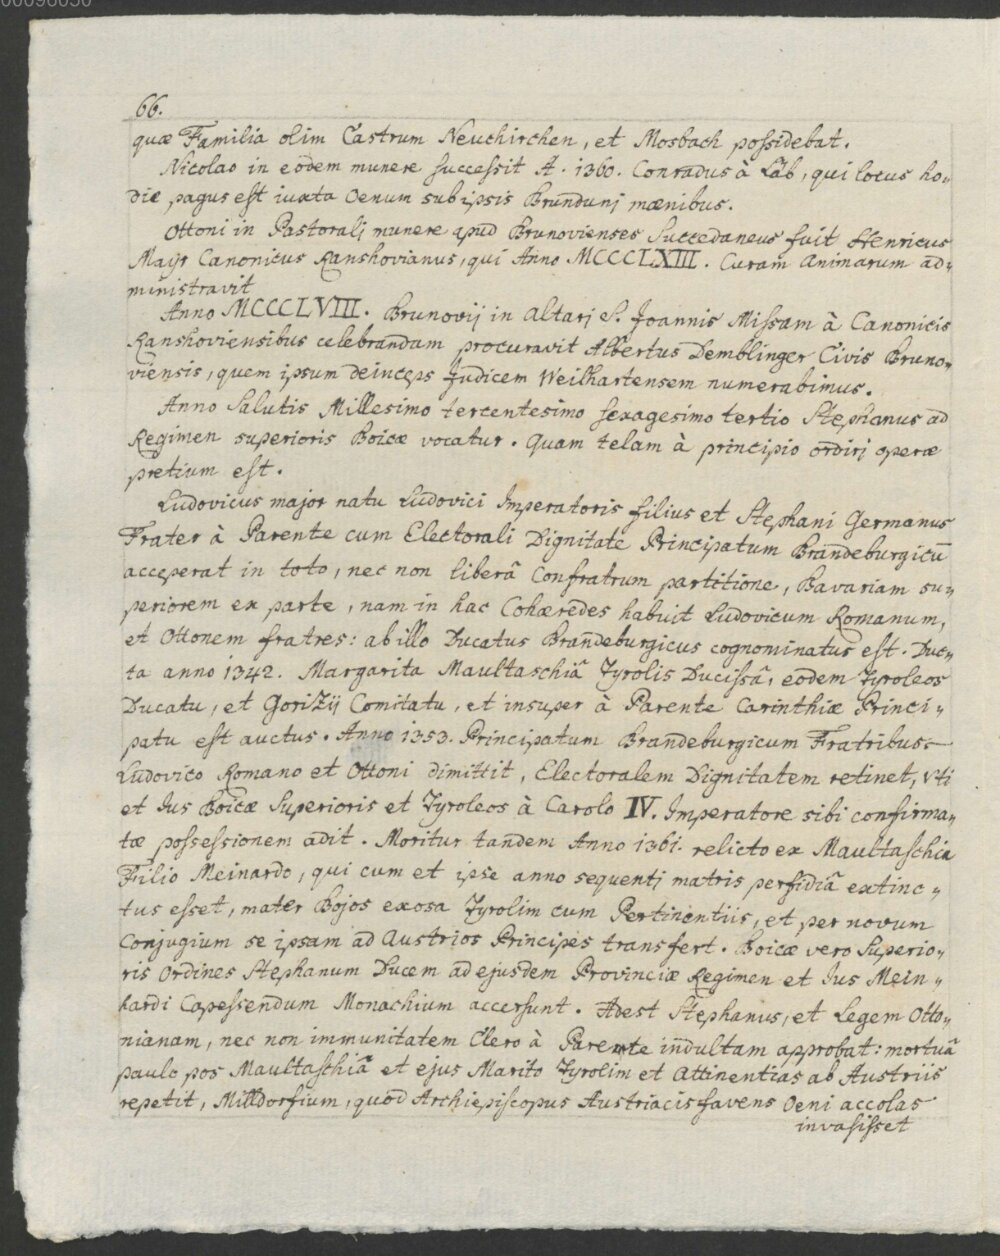 00096056
66.
quæ Familia olim Castrum Neuchirchen, et Mosbach possidebat.
Nicolao in eodem munere successit A. 1360. Conradus à Láb, qui locus ho„
die pagus est iuxta Oenum sub ipsis Brundunj mœnibus.
Ottoni in Pastoralj munere apud Brunovienses Succedaneus fuit Henricus
Mayr Canonicus Ranshovianus, qui Anno MCCCCLXIII. Curam Animarum ad„
ministravit
Anno MCCCCLVIII. Brunovij in altarj S. Joannis Missam à Canonicis
Ranshoviensibus celebrandam procuravit Albertus Demblinger Civis Bruno„
viensis, quem ipsum deinceps Judicem Weilhartensem numerabimus.
Anno Salutis Millesimo tercentesimo sexagesimo tertio Stephanus ad
Regimen superioris Boicæ vocatur. Quam telam à principio ordirj operæ
pretium est.
Ludovicus major natu Ludovici Imperatoris filius et Stephani Germanus
Frater à Parente cum Electorali Dignitate Principatum Brandeburgicū
acceperat in toto, nec non liberâ Confratrum partitione, Bavariam su„
periorem ex parte, nam in hac Cohæredes habuit Ludovicum Romanum,
et Ottonem fratres: ab illo Ducatus Brandeburgicus cognominatus est. Duc„
ta anno 1342. Margarita Maultaschiâ Tyrolis Ducissâ, eodem Tyroleos
Ducatu, et Gorizij Comitatu, et insuper à Parente Carinthiæ Princi„
patu est auctus. Anno 1353. Principatum Brandeburgicum Fratribus
Ludovico Romano et Ottoni dimittit, Electoralem Dignitatem retinet, Vti
et Jus Boicæ Superioris et Tyroleos à Carolo IV. Imperatore sibi confirma„
tæ possessionem adit. Moritur tandem Anno 1361. relicto ex Maultaschia
Filio Meinardo, qui cum et ipse anno sequentj matris perfidiâ extinc„
tus esset, mater Bojos exosa Tyrolim cum Pertinentiis, et per novum
Conjugium se ipsam ad Austrios Principes transfert. Boicæ vero Superio„
ris Ordines Stephanum Ducem ad ejusdem Provinciæ Regimen et Jus Mein„
hardi Capessendum Monachium accersunt. Adest Stephanus, et Legem Otto„
nianam, nec non immunitatem Clero à Parente indultam approbat: mortuâ
paulo pos Maultaschiâ et ejus Marito Tyrolim et Attinentias ab Austriis
repetit, Milldorfium, quod Archiepiscopus Austriacis favens Oeni accolas
invasisset